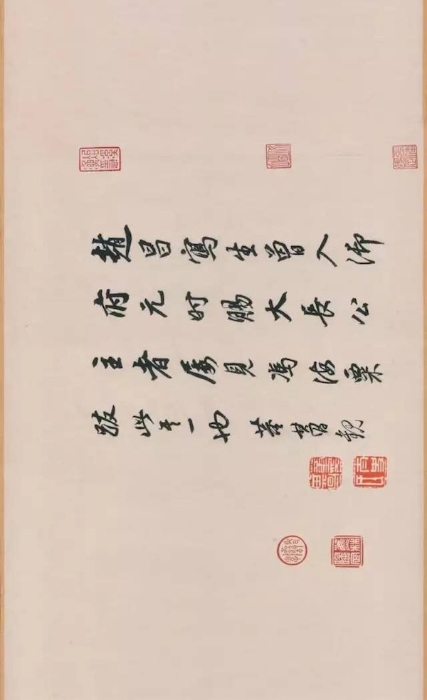 趙昌寫生曾入御
府元时賜大長公
主者屢見馮海粟
跋此其一也 董其昌觀